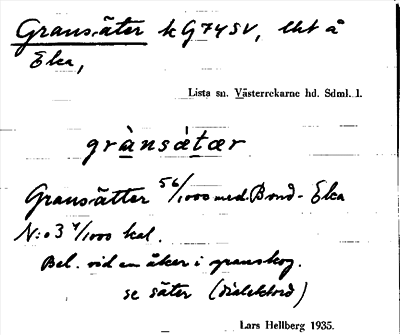 Gransäter kG74SV, lht å
Eka,
Lista sn. Västerrekarne hd. Sdml. l.
grànsǽtær
Gransätter 56/1000 med. Bond-Eka
N:o 3 4/1000 kal.
Bel. vid en åker i granskog.
se säter (dialektord)
Lars Hellberg 1935.